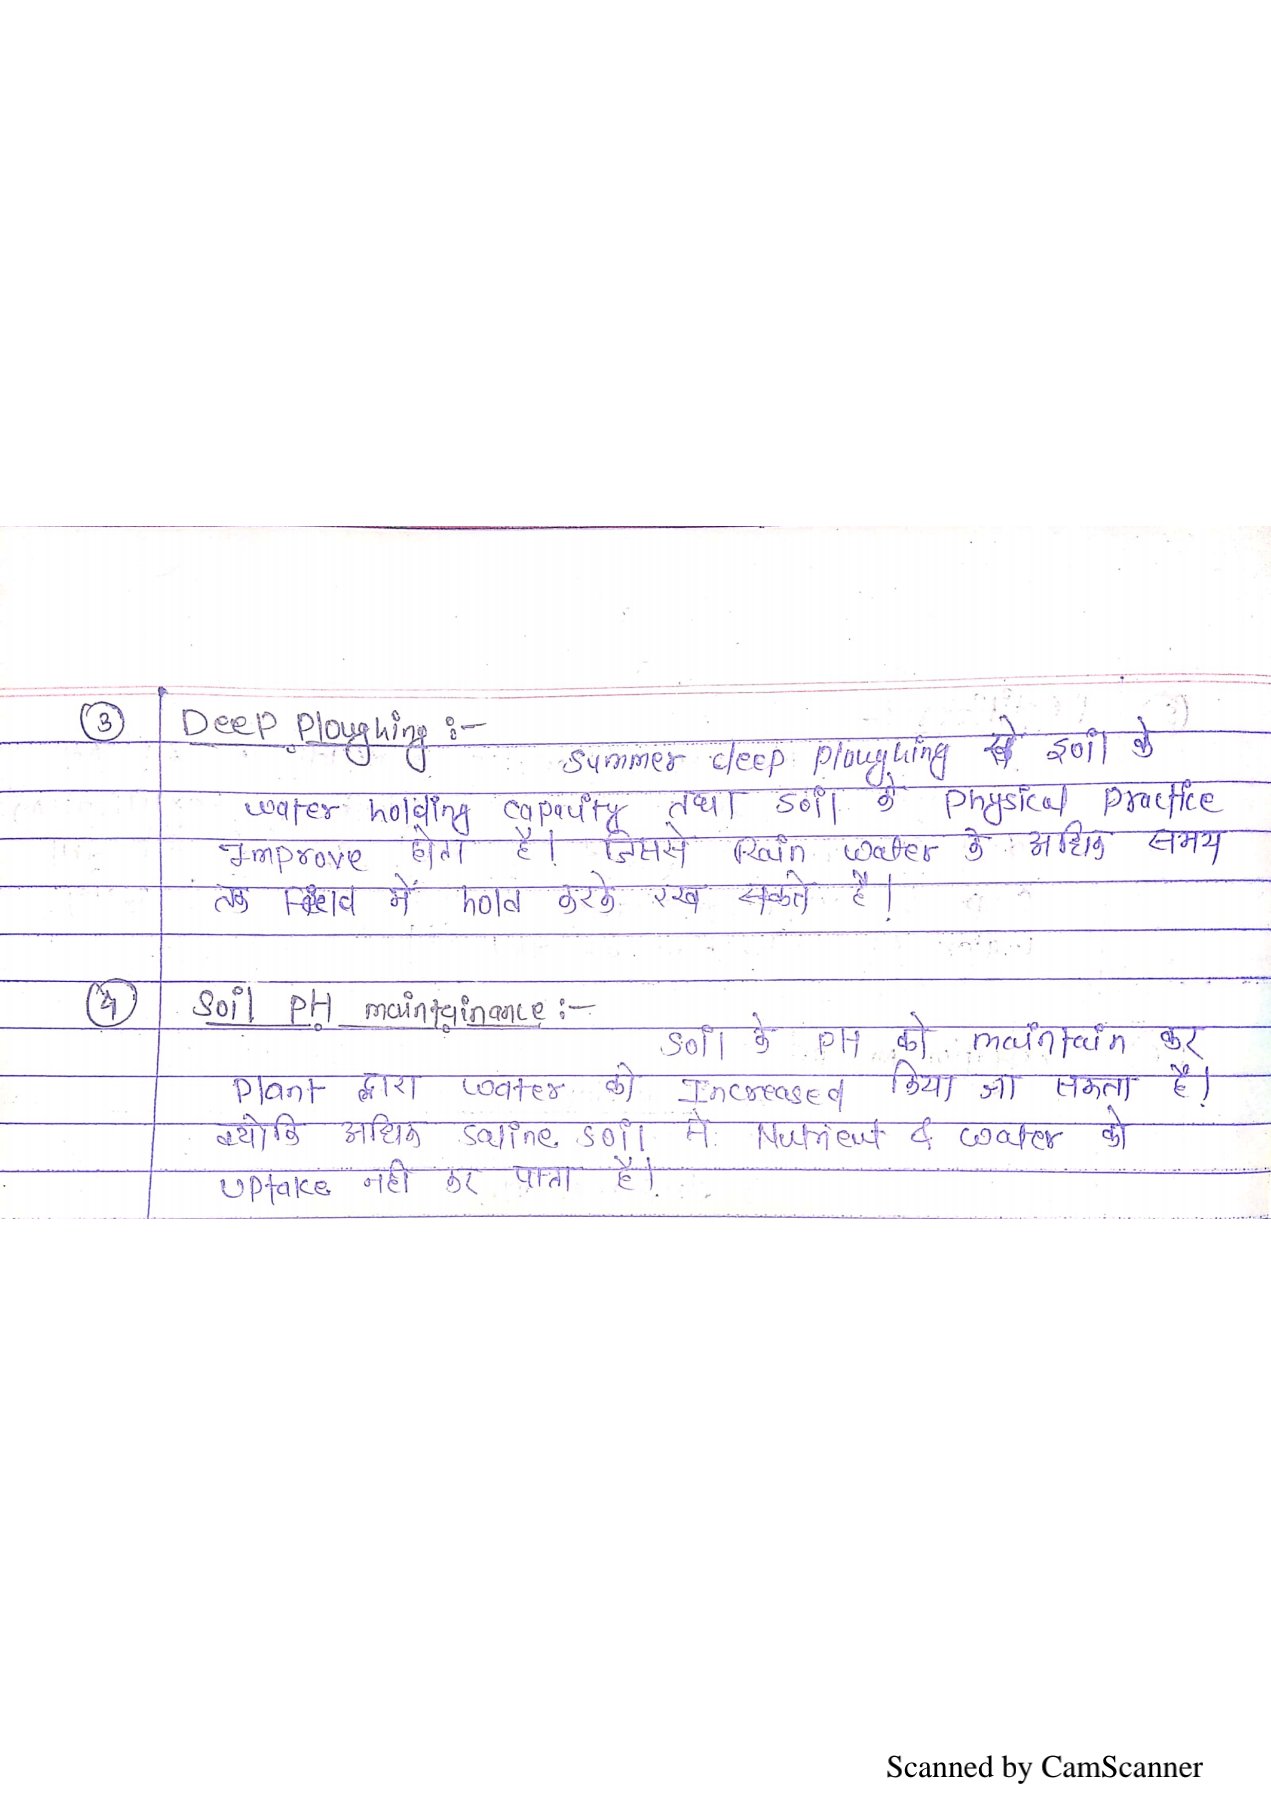 ③ Deep Ploughing :-
Summer deep ploughing से soil के
water holding capacity तथा soil के physical practice
Improve होता है। जिससे Rain water के अधिक समय
तक में hold करके रख सकते है।
④ Soil PH maintainance :-
Soil के PH को maintain कर
Plant द्वारा water को Increased किया जा सकता है।
क्योकि अधिक saline soil मे Nutrient & water को
uptake नही कर पाता है।
Scanned by CamScanner